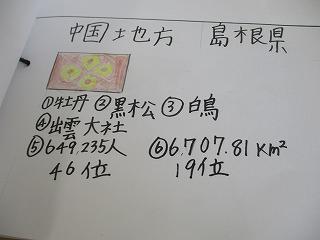 中国地方 島根県
①牡丹 ②黒松 ③白鳥
④出雲大社
⑤649,235人 ⑥6,707.81km²
46位 19位